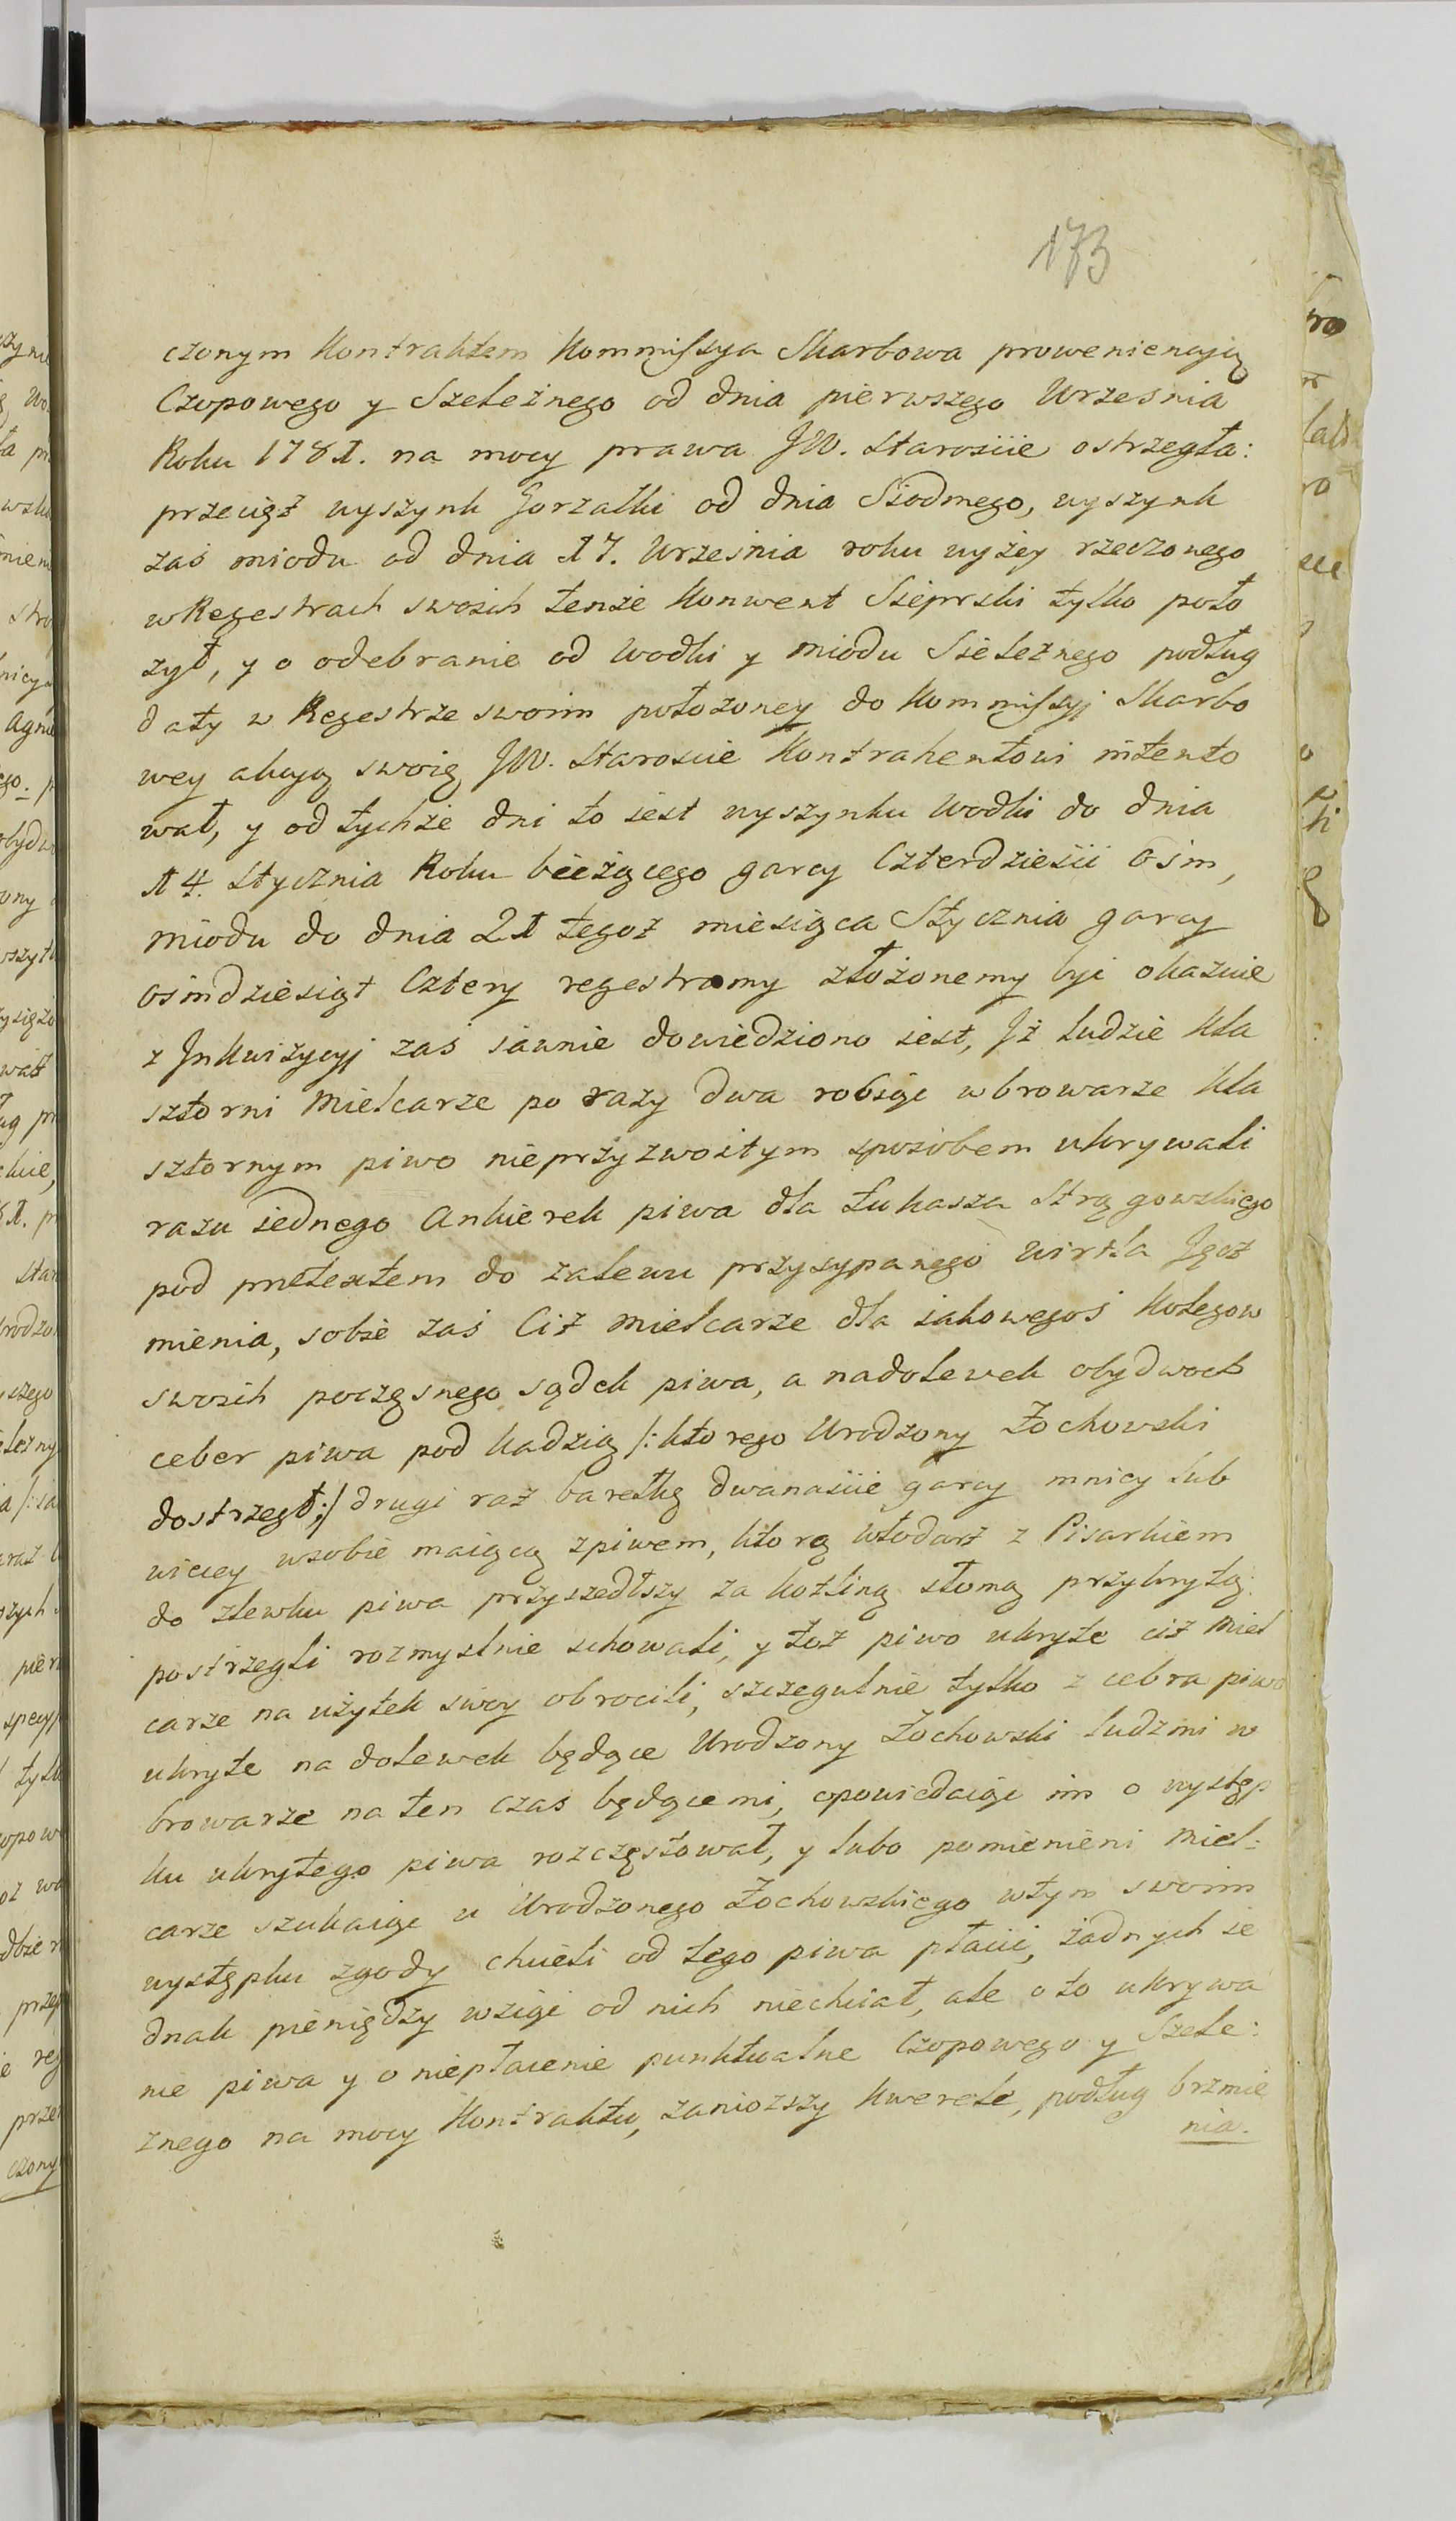 173
czonym Kontraktem Kommissya Skarbowa proweniencyią
Czopowego y Szelężnego od dnia pierwszego Wrzesnia
Roku 1781. na mocy prawa JW. Staroście ostrzegła:
przeciąż wyszynk Gorzałki od dnia Siodmego, wyszynk
zaś miodu od dnia 17. Wrzesnia roku wyżey rzeczonego
w Regestrach swoich tenże Konwent Sieprski tylko poło
żył, y o odebranie od Wodki y miodu Sielężnego podług
daty w Regestrze swoim położoney do Kommissyi Skarbo
wey akcyą swoią JW. Staroscie Kontrahentowi intento
wał, y od tychże dni to iest wyszynku Wodki do dnia
14. Stycznia Roku bieżącego garcy Czterdzieści Ośm,
miodu do dnia 21 tegoż miesiąca Stycznia garcy
Ośmdziesiąt Cztery regestramy złożonemy być okazuie
z Inkwizycyi zaś iawnie dowiedziono iest, Jż ludzie Kla
sztorni Mielcarze po razy dwa robiąc w browarze Kla
sztornym piwo nieprzyzwoitym sposobem ukrywali
razu iednego Ankierek piwa dla Łukasza Strągowskiego
pod pretextem do zalewu przysypanego Jęcz
mienia, sobie zaś Ciż Mielcarze dla iakowegoś Kolegow
swoich poczęsnego sądek piwa, a nadolewek obydwoch
ceber piwa pod Kadzią /: Ktorego Urodzony Żochowski
dostrzegł :/ drugi raz baretkę dwanaście garcy mnicy lub
wiecey w sobie maiącą z piwem, Ktorą Włodarz z Pisarkiem
do zlewku piwa przyszedłszy za Kotliną słomą przykrytą
postrzegli rozmyslnie schowali, y toż piwo ukryte ciż Miel
carze na użytek swoy obrocili, szczegulnie tylko z cebra piwo
ukryte na dolewek będące Urodzony Żochowski ludzmi w
browarze na ten czas będącemi, opowiedaiąc im o występ
ku ukrytego piwa rozczęstował, y lubo pomienieni Miel:
carze szukaiąc u Urodzonego Żochowskiego w tym swoim
występku zgody chcieli od tego piwa płacić, żadnych ie
dnak pieniędzy wziąć od nich niechciał, ale o to ukrywa
nie piwa y o niepłacenie punktualne Czopowego y Szelę:
żnego na mocy Kontraktu, zaniozszy Kwerelę, podług brzmie
nia.